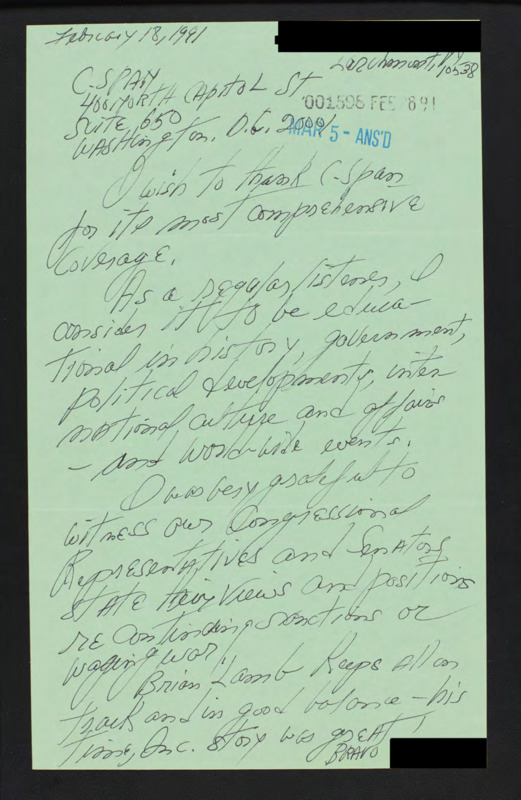 February 18, 1991
Larchmont, NY
10538
C-SPAN
400 North Capitol St
Suite 650
Washington, D.C. 20001
001596 FEB 26 91
MAR 5 - ANS'D
I wish to thank C-Span
for its most comprehensive
coverage.
As a regular listener, I
consider it to be educa-
tional in history, government,
political developments, inter
national, culture and affairs
- and world-wide events.
I was very grateful to
witness our Congressional
Representatives and Senators
state their views and positions
re continuing sanctions or
waging war.
Brian Lamb keeps all on
track and in good balance - his
Time, Inc. story was great!
BRAVO